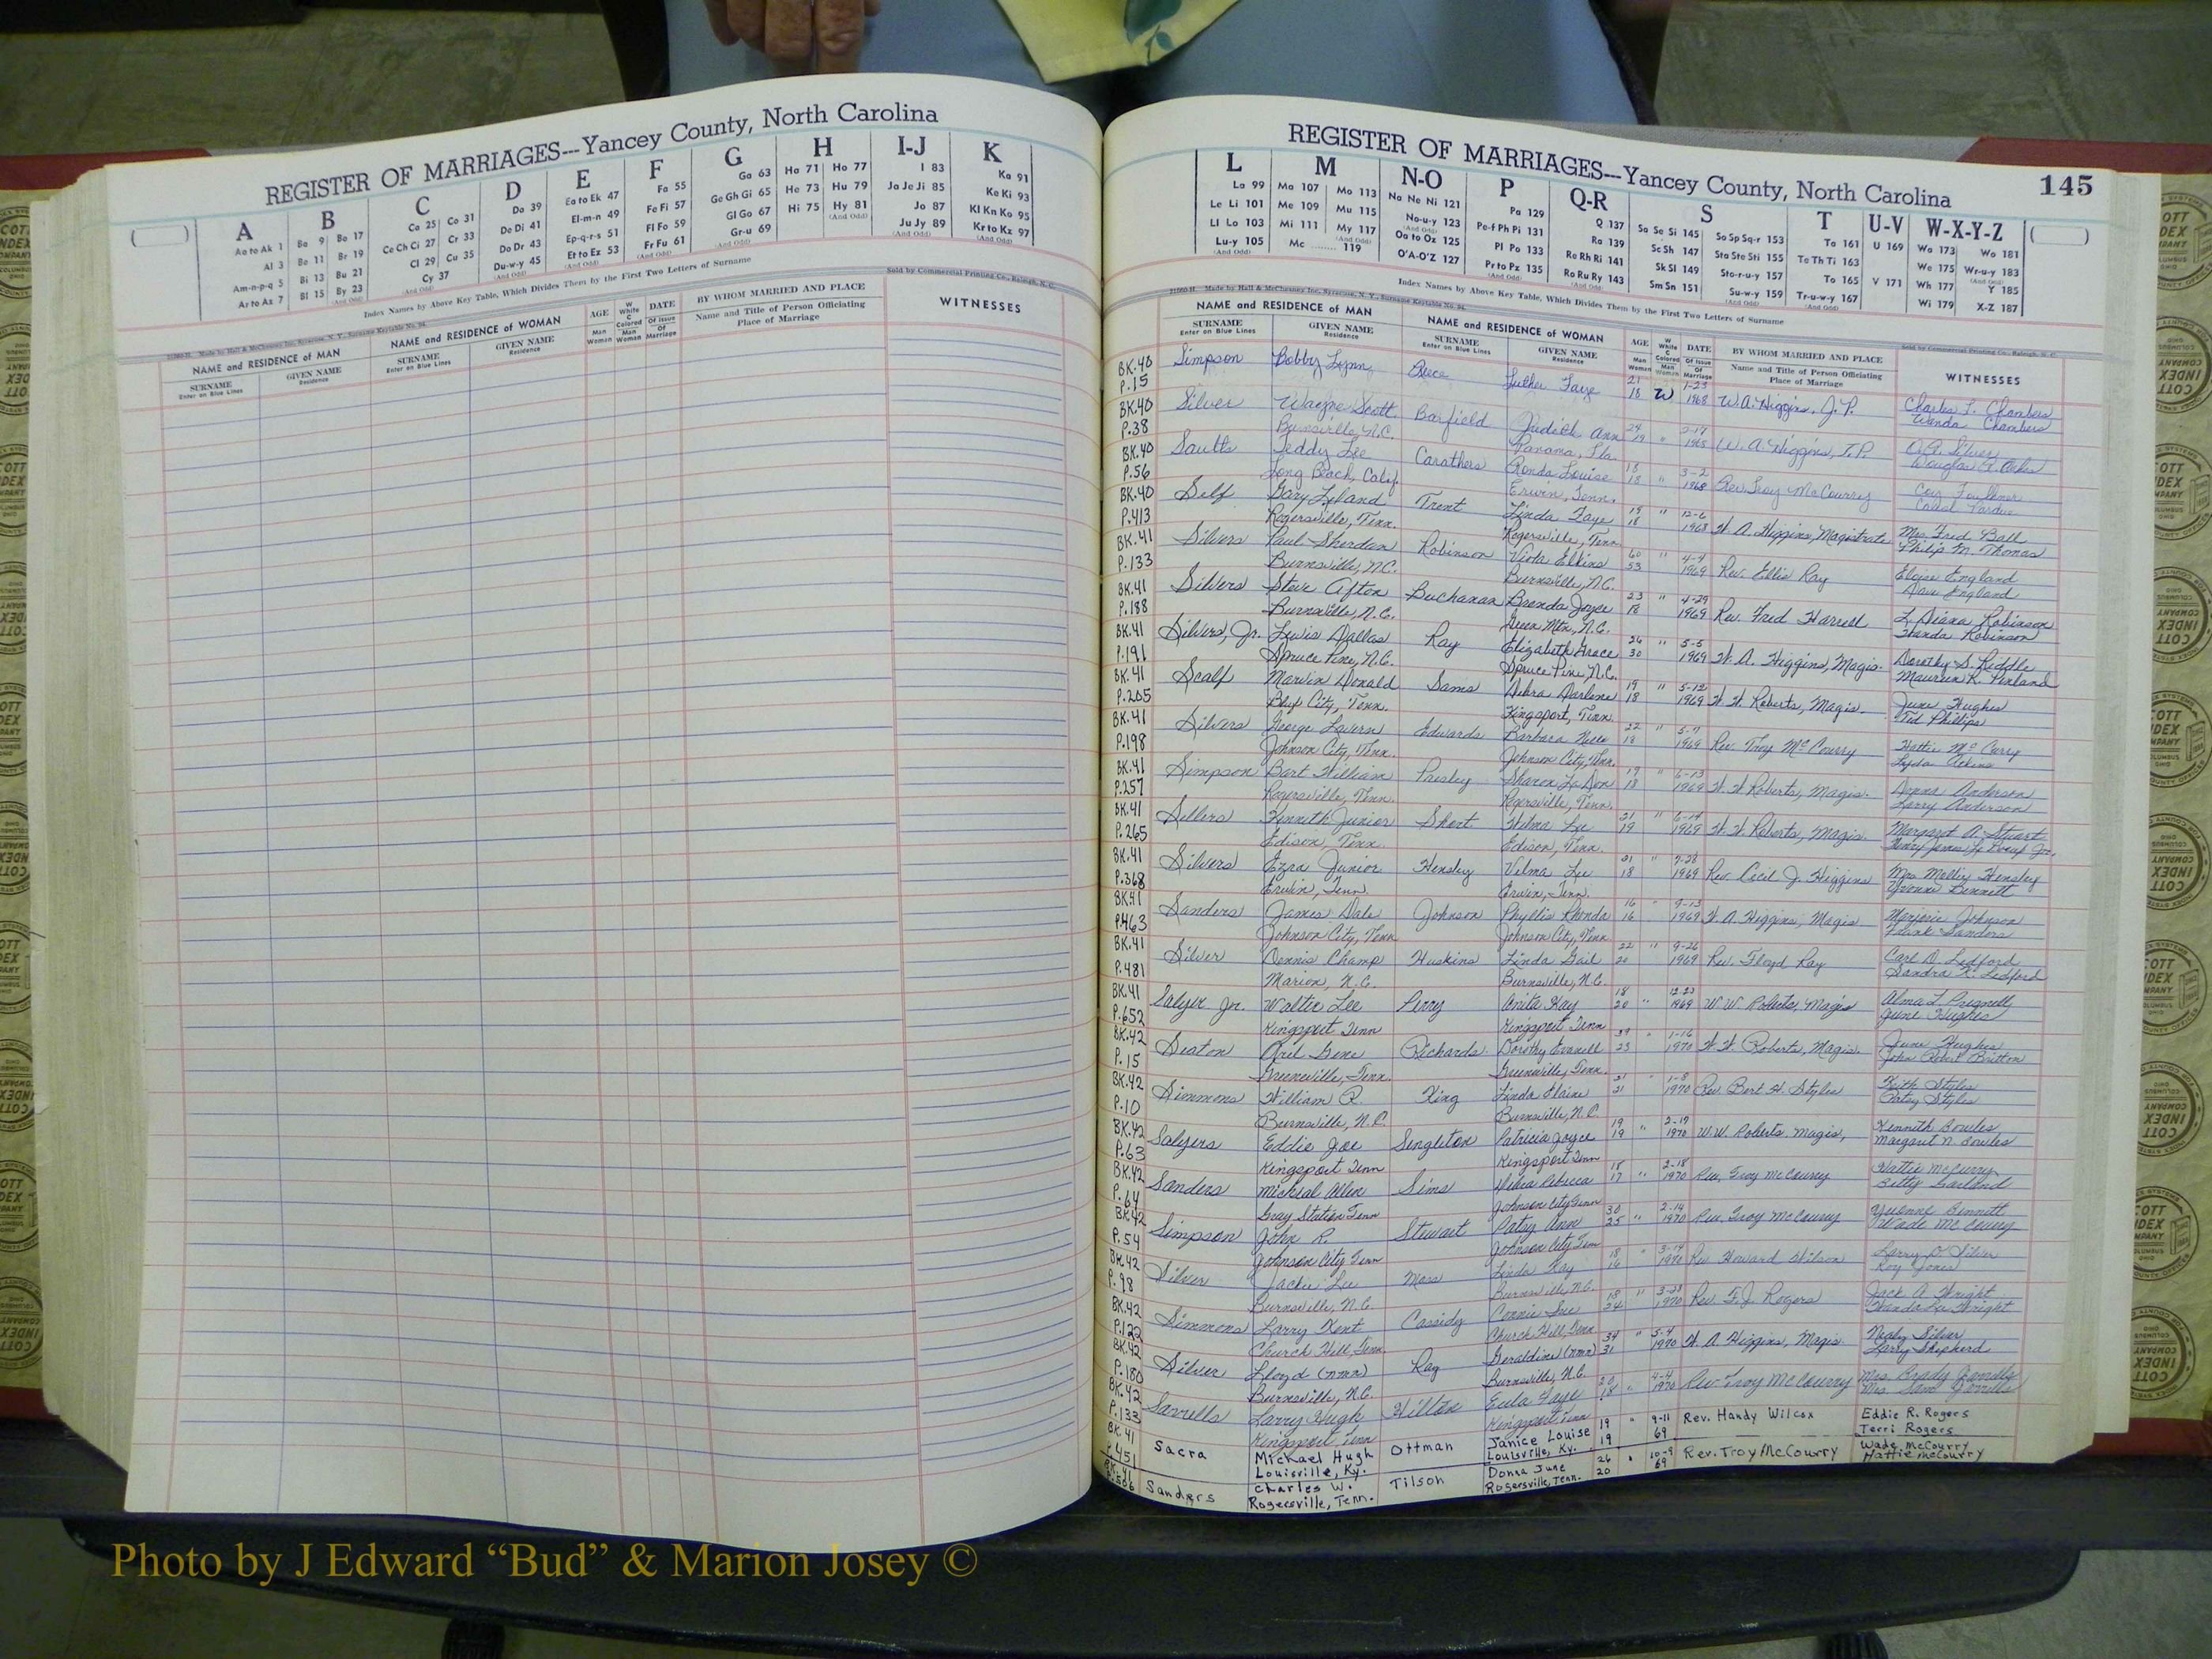 REGISTER OF MARRIAGES---Yancey County, North Carolina
A B C D E F G H I-J K
Aa to Ak 1 Ba 9 Bo 17 Ca 25 Co 31 Da 39 Ea to Ek 47 Fa 55 Ga 63 Ha 71 Ho 77 I 83 Ka 91
Al 3 Be 11 Br 19 Ce Ch Ci 27 Cr 33 De Di 41 El-m-n 49 Fe Fi 57 Ge Gh Gi 65 He 73 Hu 79 Ja Je Ji 85 Ke Ki 93
Am-n-p-q 5 Bi 13 Bu 21 Cl 29 Cu 35 Do Dr 43 Ep-q-r-s 51 Fl Fo 59 Gl Go 67 Hi 75 Hy 81 Jo 87 Kl Kn Ko 95
Ar to Az 7 Bl 15 By 23 Cy 37 Du-w-y 45 Et to Ez 53 Fr Fu 61 Gr-u 69 Ju Jy 89 Kr to Kz 97
Index Names by Above Key Table, Which Divides Them by the First Two Letters of Surname
Sold by Commercial Printing Co., Raleigh, N. C.
NAME and RESIDENCE of MAN
SURNAME
Enter on Blue Lines
GIVEN NAME
Residence
NAME and RESIDENCE of WOMAN
SURNAME
Enter on Blue Lines
GIVEN NAME
Residence
AGE
Man
Woman
W White
C Colored
Man
Woman
DATE
Of Issue
Of Marriage
BY WHOM MARRIED AND PLACE
Name and Title of Person Officiating
Place of Marriage
WITNESSES
REGISTER OF MARRIAGES---Yancey County, North Carolina 145
L M N-O P Q-R S T U-V W-X-Y-Z
La 99 Ma 107 Mo 113 Na Ne Ni 121 Pa 129 Q 137 Sa Se Si 145 So Sp Sq-r 153 Ta 161 U 169 Wa 173 Wo 181
Le Li 101 Me 109 Mu 115 No-u-y 123 Pe-f Ph Pi 131 Ra 139 Sc Sh 147 Sta Ste Sti 155 Te Th Ti 163 We 175 Wr-u-y 183
Ll Lo 103 Mi 111 My 117 Oa to Oz 125 Pl Po 133 Re Rh Ri 141 Sk Sl 149 Sto-r-u-y 157 To 165 V 171 Wh 177 Y 185
Lu-y 105 Mc 119 O'A-O'Z 127 Pr to Pz 135 Ro Ru Ry 143 Sm Sn 151 Su-w-y 159 Tr-u-w-y 167 Wi 179 X-Z 187
Index Names by Above Key Table, Which Divides Them by the First Two Letters of Surname
NAME and RESIDENCE of MAN
SURNAME
Enter on Blue Lines
GIVEN NAME
Residence
NAME and RESIDENCE of WOMAN
SURNAME
Enter on Blue Lines
GIVEN NAME
Residence
AGE
DATE
BY WHOM MARRIED AND PLACE
Name and Title of Person Officiating
Place of Marriage
WITNESSES
BK.40 Simpson Bobby Lynn Luther Faye 21 W 1-23 W.A. Higgins, J.P. Charles L. Chambers
P.15 18 1968 Wanda Chambers
BK.40 Silver Wayne Scott Barfield Judith Ann 24 1968 W. A. Higgins, J.P.
P.38 Burnsville, N.C. Panama, Fla. 19
BK.40 Saults Teddy Lee Carathers Ronda Louise 18 " 3-2 Rev. Troy McCourry
P.56 Long Beach, Calif. Erwin, Tenn. 18 1968
BK.40 Self Gary Leland Trent Linda Faye 19 " 12-6 W. A. Higgins, Magistrate Mrs. Fred Ball
P.413 Rogersville, Tenn. Rogersville, Tenn. 18 1968 Philip M. Thomas
BK.41 Silvers Paul Sherdan Robinson Viola Elkins 60 " 4-4 Rev. Ellis Ray Eloise England
P.133 Burnsville, N.C. Burnsville, N.C. 53 1969 Dave England
BK.41 Silvers Steve Afton Buchanan Brenda Joyce 23 " 4-29 Rev. Fred Harrell L. Diana Robinson
P.188 Burnsville, N.C. Green Mtn., N.C. 18 1969 Wanda Robinson
BK.41 Silvers, Jr. Lewis Dallas Ray Elizabeth Grace 26 " 5-5 W. A. Higgins, Magis. Dorothy S. Riddle
P.191 Spruce Pine, N.C. Spruce Pine, N.C. 30 1969 Maurien K. Penland
BK.41 Scalf Marvin Donald Sams Debra Darlene 19 " 5-12 W. W. Roberts, Magis. June Hughes
P.205 Bluff City, Tenn. Kingsport, Tenn. 18 1969 Ted Phillips
BK.41 Silvers George Lavern Edwards Barbara 22 " 5-7 Rev. Troy McCourry Hattie McCurry
P.198 Johnson City, Tenn. Johnson City, Tenn. 18 1969 Lyda Atkins
BK.41 Simpson Bart William Presley Sharon LaDon 19 " 6-13 W. W. Roberts, Magis. Anderson
P.257 Rogersville, Tenn. Rogersville, Tenn. 18 1969 Larry Anderson
BK.41 Sellers Kenneth Junior Short Wilma Lee 21 " 6-14 W. W. Roberts, Magis. Margaret A. Stuart
P.265 Edison, Tenn. Edison, Tenn. 19 1969
BK.41 Silvers Ezra Junior Hensley Velma Lee 21 " 7-28 Rev. Cecil J. Higgins Mrs. Molly Hensley
P.368 Erwin, Tenn. Erwin, Tenn. 18 1969 Yvonne Bennett
BK.41 Sanders James Dale Johnson Phyllis Rhonda 16 " 9-13 W. A. Higgins, Magis Marjorie Johnson
P.463 Johnson City, Tenn Johnson City, Tenn 16 1969 Frank Sanders
BK.41 Silver Dennis Champ Huskins Linda Gail 22 " 9-26 Rev. Floyd Ray Carl D. Ledford
P.481 Marion, N.C. Burnsville, N.C. 20 1969 Sandra K. Ledford
BK.41 Salyer Jr. Walter Lee Perry Anita Kay 18 12-23 W. W. Roberts, Magis Alma L.
P.652 Kingsport Tenn Kingsport Tenn 20 " 1969 June Hughes
BK.42 Seaton Gene Richards Dorothy 39 " 1-16 W. W. Roberts, Magis. June Hughes
P.15 Greeneville, Tenn. Greeneville, Tenn. 23 1970 John Robert Britton
BK.42 Simmons William R. King Linda Elaine 21 " 1-8 Rev. Bert H. Styles Keith Styles
P.10 Burnsville, N.C. Burnsville, N.C. 21 1970 Patsy Styles
BK.42 Salyers Eddie Joe Singleton Patricia Joyce 19 " 2-19 W.W. Roberts. Magis, Kenneth Bowles
P.63 Kingsport Tenn Kingsport Tenn 19 1970 Margaret N. Bowles
BK.42 Sanders Mickial Allen Sims 18 2-18 Rev. Troy McCourry Hattie McCurry
P.64 Gray Station Tenn Johnson City Tenn 17 " 1970 Betty Garland
BK.42 Simpson John R. Stewart Patsy Ann 30 2-14 Rev. Troy McCourry Yvonne Bennett
P.54 Johnson City Tenn Johnson City Tenn 25 " 1970 Wade McCourry
BK.42 Silver Jackie Lee Moss Linda Kay 18 " 3-14 Rev. Howard Wilson Larry D. Silver
P.98 Burnsville, N.C. Burnsville, N.C. 16 1970 Roy Jones
BK.42 Simmons Larry Kent Cassidy Connie Sue 18 " 3-28 Rev. F.J. Rogers Jack A. Wright
P.122 Church Hill, Tenn. Church Hill, Tenn 24 1970 Wanda Lee Wright
BK.42 Silver Lloyd (nmn) Ray Geraldine (nmn) 34 " 5-4 W. A. Higgins, Magis. Nealy Silver
P.180 Burnsville, N.C. Burnsville, N.C. 31 1970 Larry Shepherd
BK.42 Sarrells Larry Hugh Hilton Eula Faye 20 4-4 Rev. Troy McCourry Mrs. Brady
P.133 Kingsport Tenn Kingsport Tenn 18 " 1970 Mrs. Sam
BK.41 Sacra Michael Hugh Ottman Janice Louise 19 " 9-11 Rev. Handy Wilcox Eddie R. Rogers
P.451 Louisville, Ky. Louisville, Ky. 19 69 Terri Rogers
BK.41 Sanders Charles W. Tilson Donna June 26 " 10-9 Rev. Troy McCourry Wade McCourry
P.506 Rogersville, Tenn. Rogersville, Tenn. 20 69 Hattie McCourry
Photo by J Edward “Bud” & Marion Josey ©